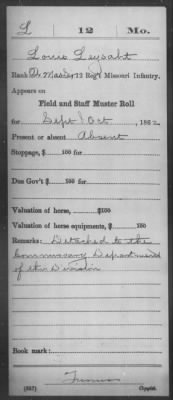 L | 12 | Mo.
Louis
Rank 12 Reg't Missouri Infantry.
Appears on
Field and Staff Muster Roll
for Sept & Oct, 1862.
Present or absent Absent
Stoppage, $ 100 for
Due Gov't $ 100 for
Valuation of horse, $ 100
Valuation of horse equipments, $ 100
Remarks: Detached to the
Commissary Department
of this Division
Book mark:
Copyist.